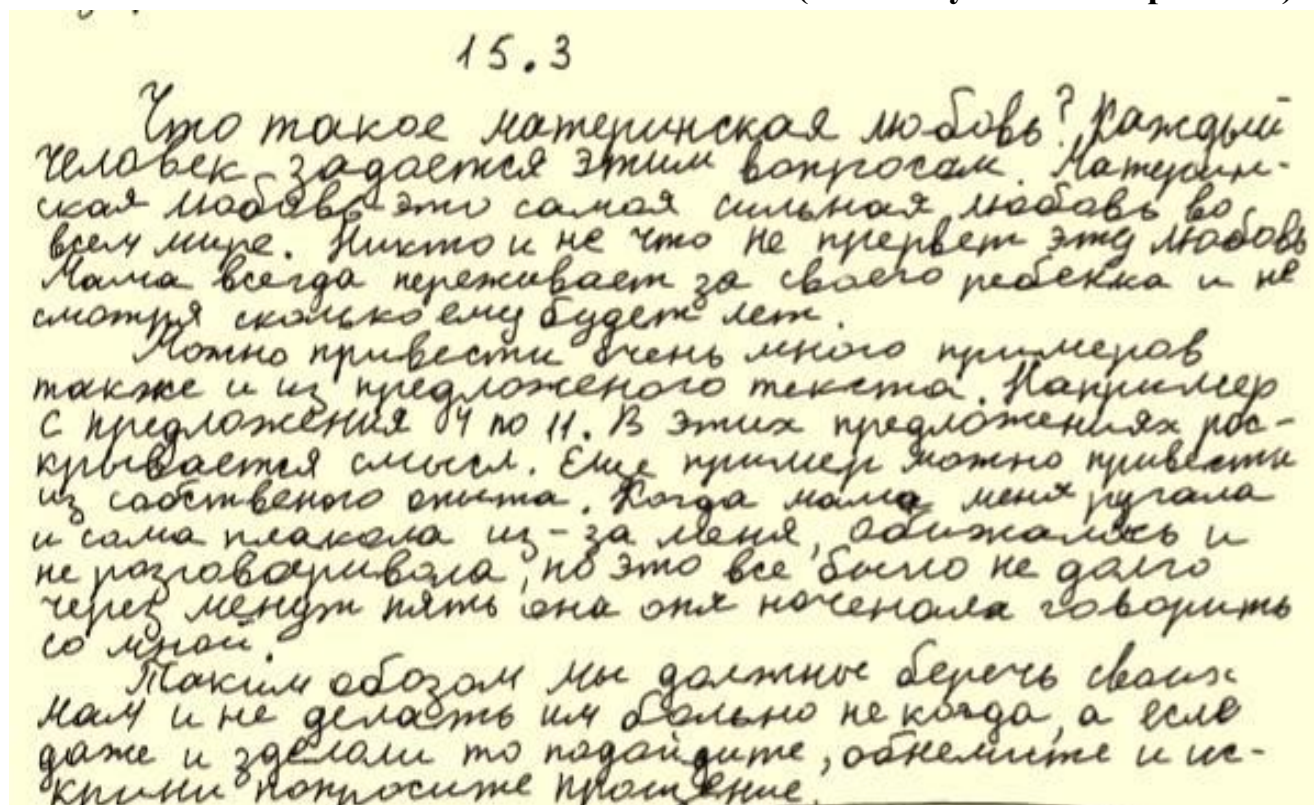 15.3
Что такое материнская любовь? Каждый
человек задается этим вопросом. Материн-
ская любовь это самая сильная любовь во
всем мире. Никто и не что не прервет эту любовь
Мама всегда переживает за своего ребенка и не
смотря сколько ему будет лет.
Можно привести очень много примеров
также и из предложеного текста. Например
с предложения 04 по 11. В этих предложениях рас-
крывается смысл. Еще пример можно привести
из собственого опыта. Когда мама меня ругала
и сама плакола из-за меня, обижалась и
не розговаривола, но это все было не долго
через менут пять она опя наченала говорить
со мной.
Таким обозом мы должные беречь своих
мам и не делать им больно не когда, а если
даже и зделоли то подойдите, обнемите и ис-
крини попросите прощение.